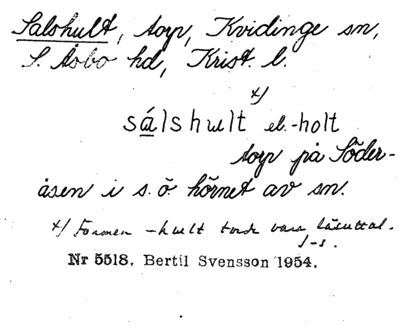 Salshult, torp, Kvidinge sn,
S. Åsbo hd, Krist. l.
x)
sálshult el. -holt
torp på Söder-
åsen i s. ö. hörnet av sn.
x) Formen -hult torde vara läsuttal.
J-s.
Nr 5518, Bertil Svensson 1954.